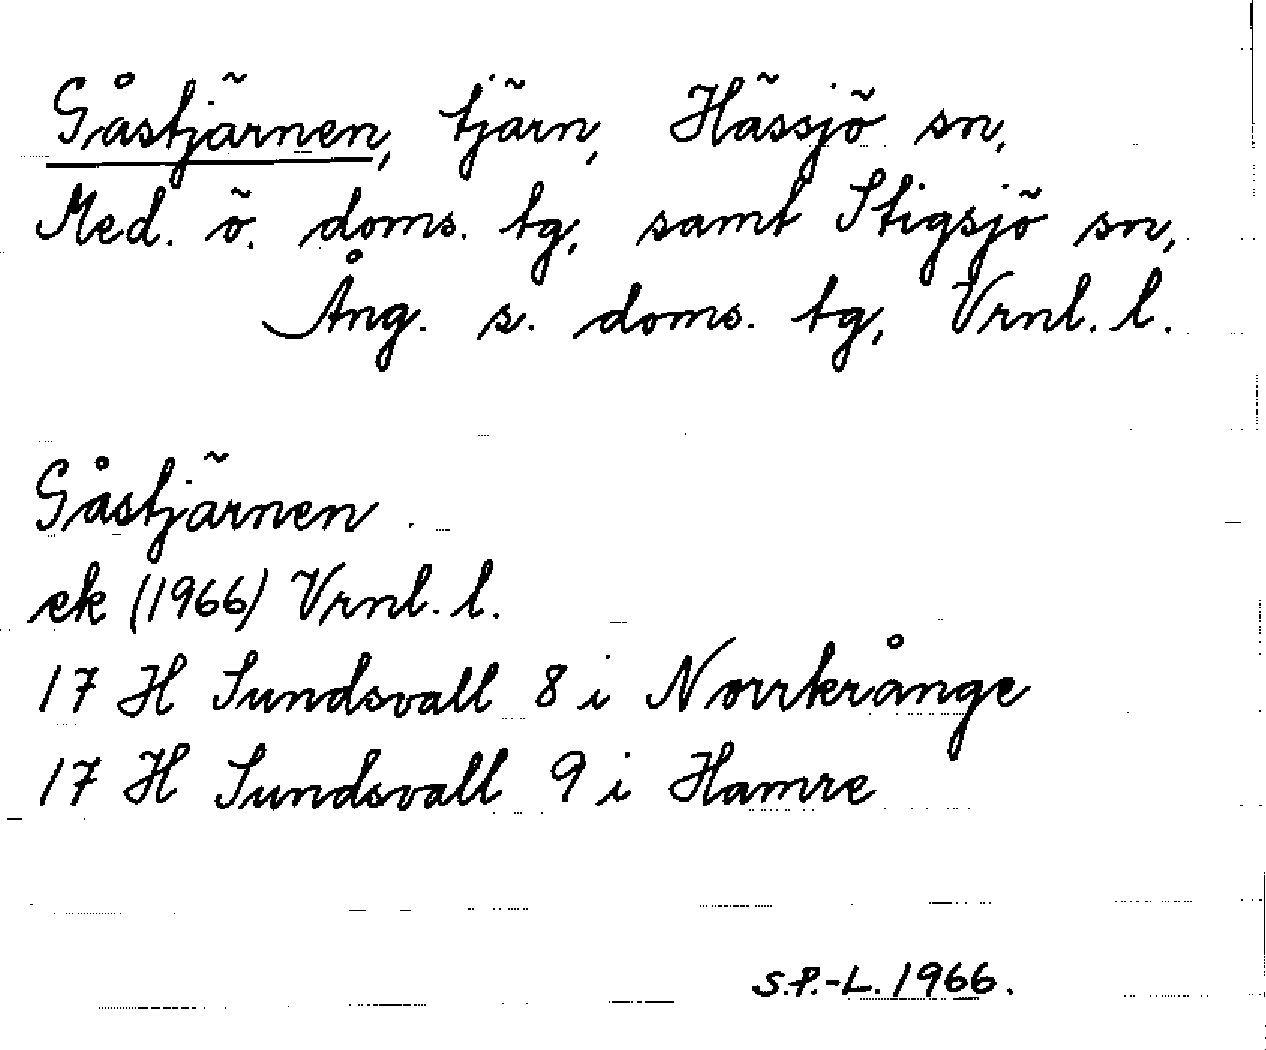 Gåstjärnen, tjärn, Hässjö sn,
Med. ö. doms. tg, samt Stigsjö sn,
Ång. s. doms. tg, Vrnl. l.
Gåstjärnen
ek (1966) Vrnl. l.
17 H Sundsvall 8 i Norrkrånge
17 H Sundsvall 9 i Hamre
S.P.-L. 1966.